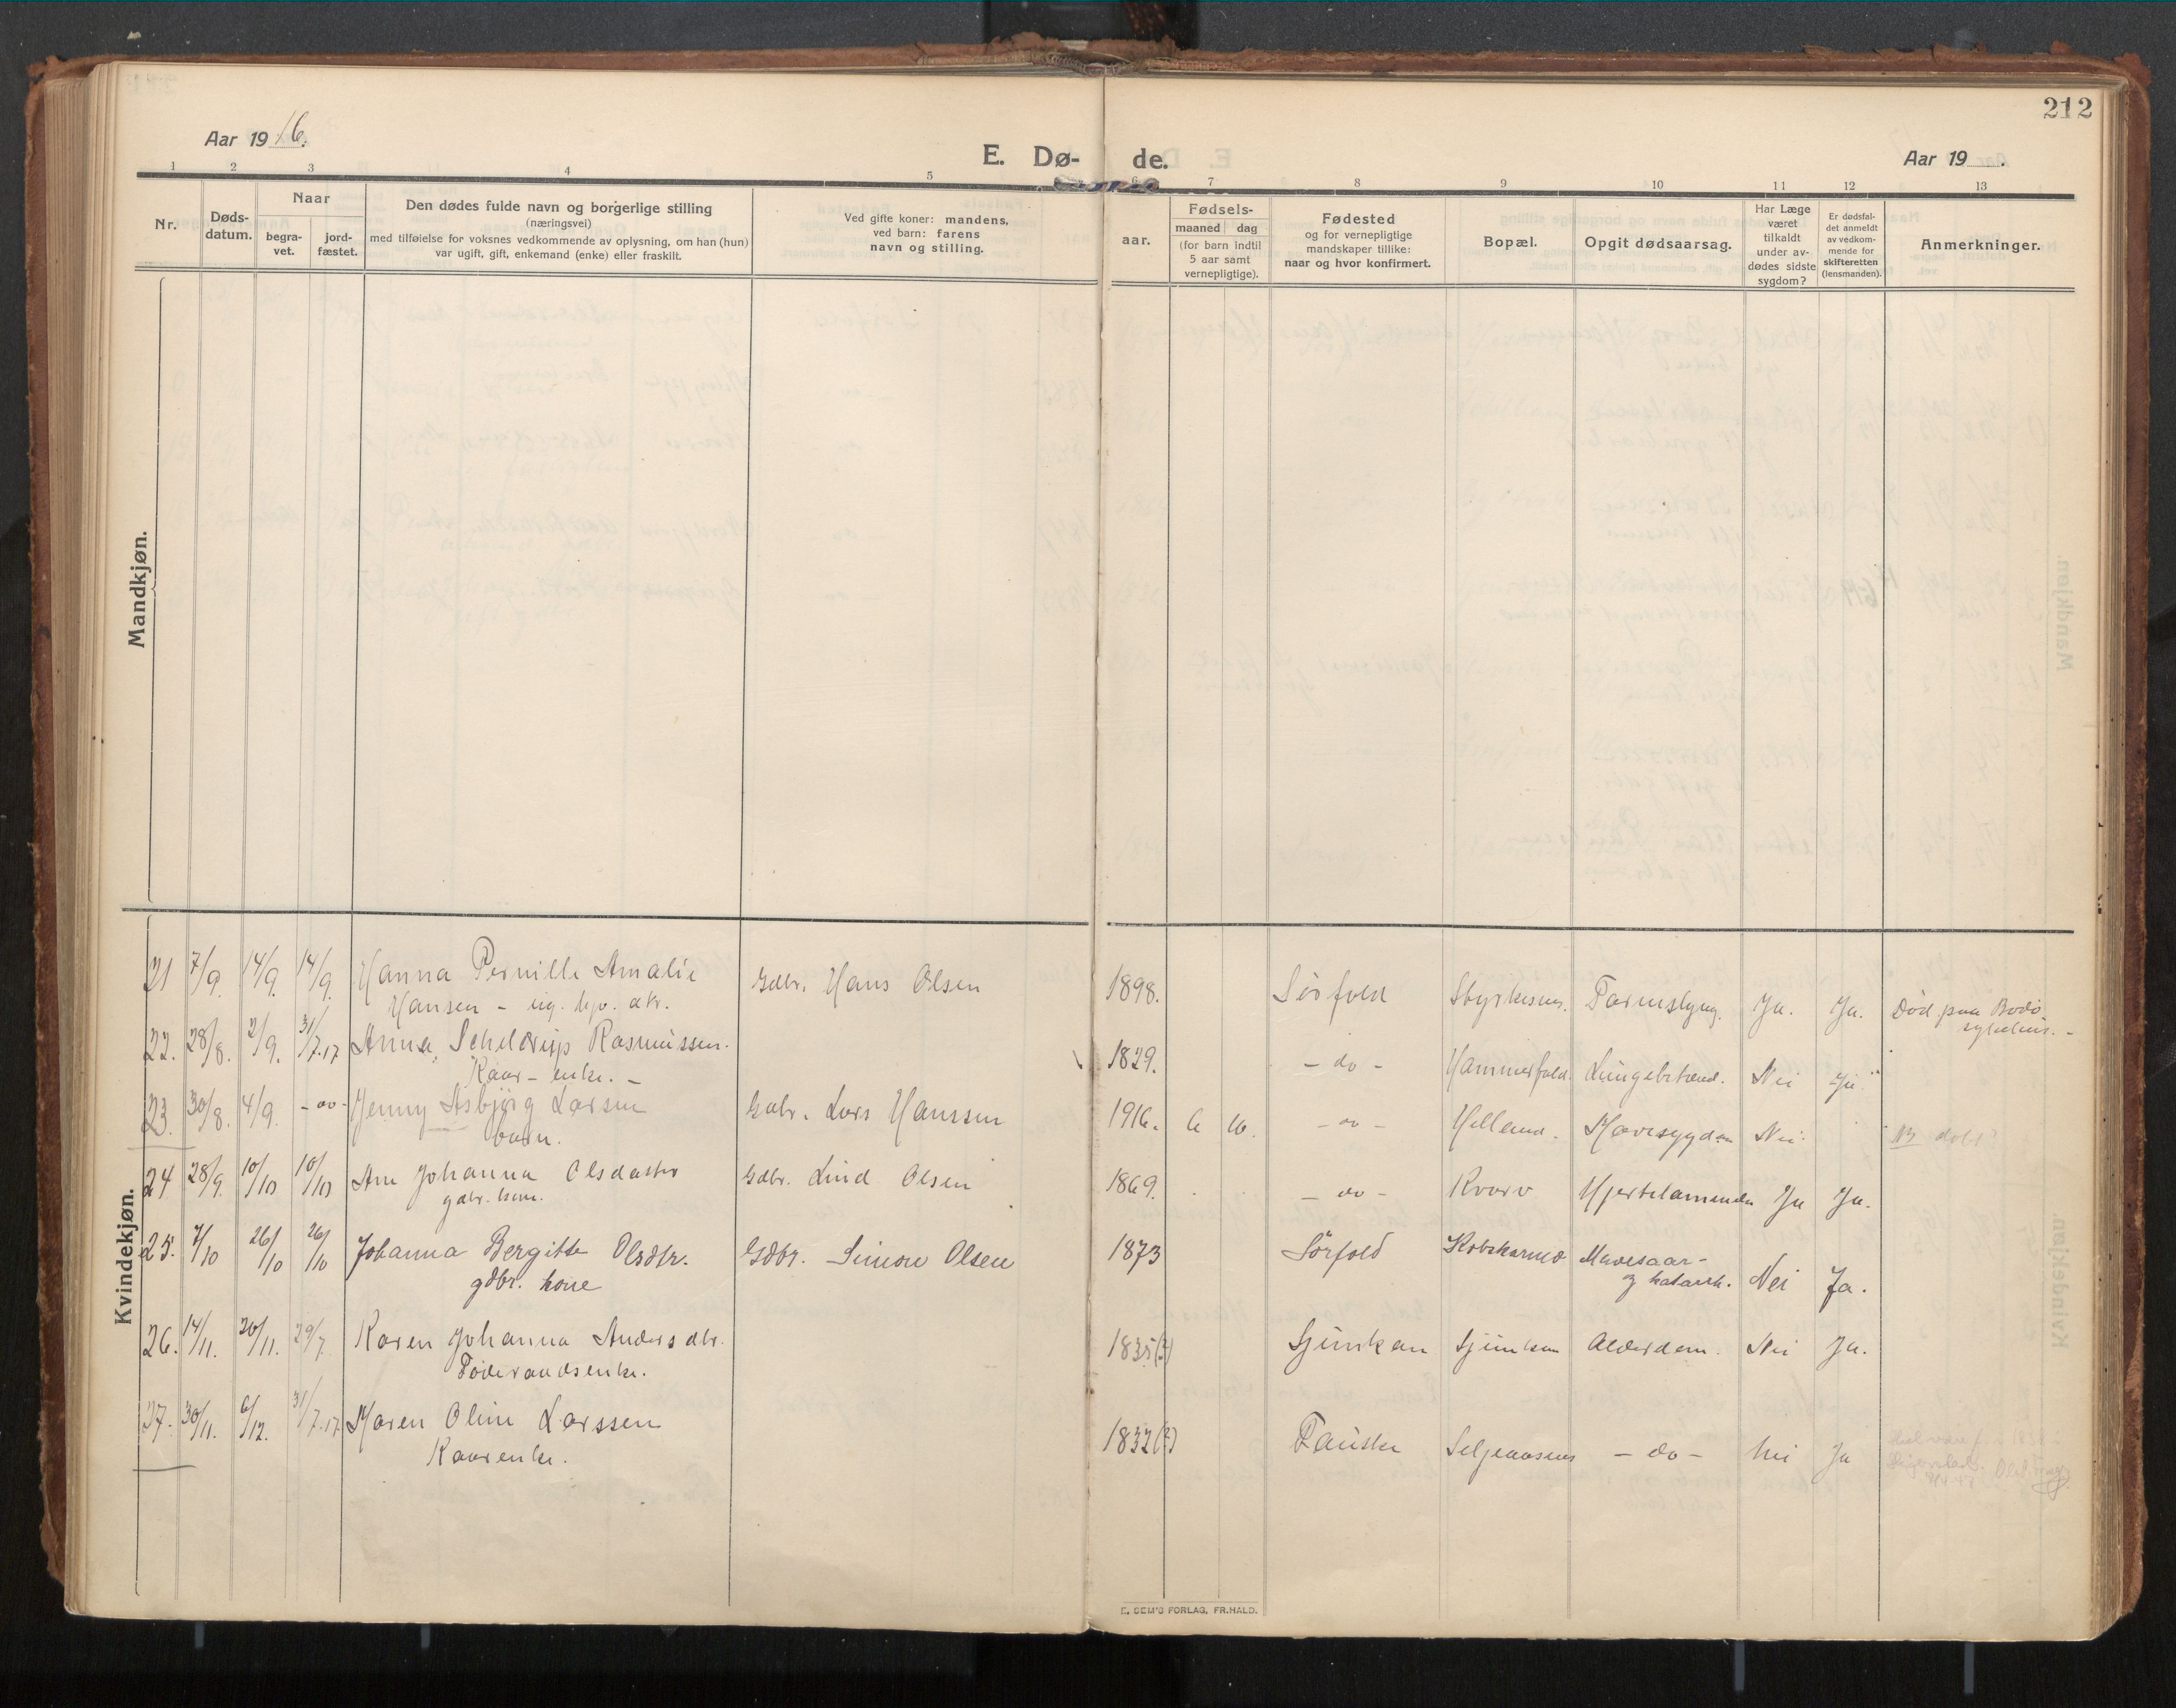 212
Aar 1916.
E. Dø- de.
Aar 19 .
1 2 3 4 5 6 7 8 9 10 11 12 13
Nr.
Døds-
datum.
Naar
begra-
vet.
jord-
fæstet.
Den dødes fulde navn og borgerlige stilling
(næringsvei)
med tilføielse for voksnes vedkommende av oplysning, om han (hun)
var ugift, gift, enkemand (enke) eller fraskilt.
Ved gifte koner: mandens,
ved barn: farens
navn og stilling.
aar.
Fødsels-
maaned dag
(for barn indtil
5 aar samt
vernepligtige).
Fødested
og for vernepligtige
mandskaper tillike:
naar og hvor konfirmert.
Bopæl.
Opgit dødsaarsag.
Har Læge
været
tilkaldt
under av-
dødes sidste
sygdom?
Er dødsfal-
det anmeldt
av vedkom-
mende for
skifteretten
(lensmanden).
Anmerkninger.
Mandkjøn.
Kvindekjøn.
21 7/9. 14/9. 14/9. Hanna Pernille Amalie Gdbr. Hans Olsen 1898. Sörfold Styrkesnes. Tarmslyng. Ja. Ja. Död paa Bodö
Hansen - ug. sykehus. -
22. 28/8. 2/9. 31/7.17 Anna Scheldrup Rasmussen. 1829. - do - Hammerfald. Lungebetænd. Nei Ja.
Kaar - enke. -
23. 30/8. 4/9. - do - Jenny Asbjörg Larsen Gdbr. Lars Hanssen 1916. 6 16. - do - Helland. Mavesygdom Nei.
barn.
24 28/9. 10/10 10/10 Ane Johanna Olsdatter Gdbr. Lind Olsen 1869. - do - Kvarv Hjertelammelse Ja Ja.
gdbr. kone.
25. 7/10 26/10 26/10 Johanna Bergitte Olsdtr. Gdbr. Simon Olsen 1873 Sörfold Mavesaar -
gdbr. kone og katarrh. Nei Ja.
26. 14/11. 20/11. 29/7. Karen Johanna Andersdtr. 1835(?) Sjunkan Sjunkan Alderdom. Nei Ja.
Föderaadsenke.
27. 30/11. 6/12. 31/7.17 Maren Oline Larssen 1832(?) Fauske - do - Nei Ja
Kaarenke.
E. SEM'S FORLAG, FR.HALD.